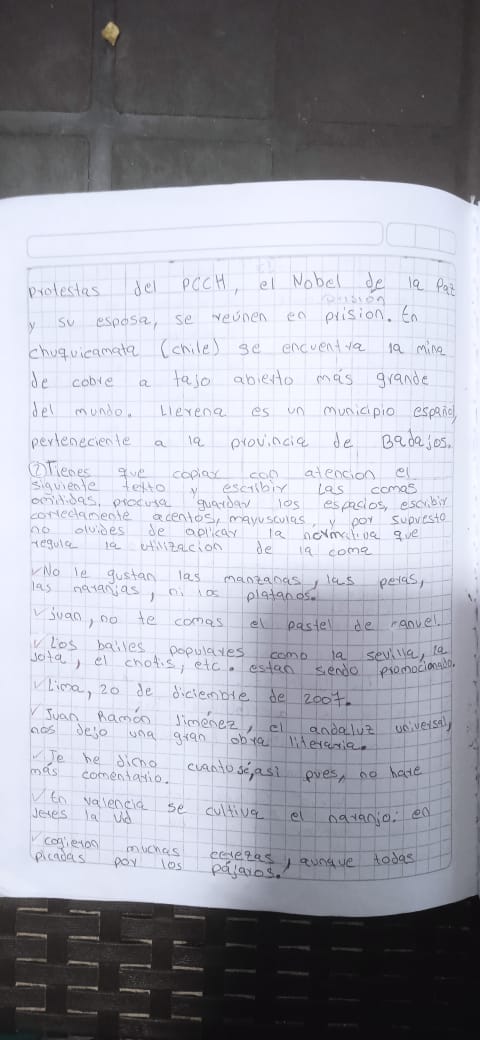 protestas del PCCH, el Nobel de la Paz
y su esposa, se reúnen en prision. En
chuquicamata (chile) se encuentra la mina
de cobre a tajo abierto más grande
del mundo. Llerena es un municipio español,
perteneciente a la provincia de Badajos.
② Tienes que copiar con atencion el
siguiente texto y escribir las comas
omitidas, procura guardar los espacios, escribir
correctamente acentos, mayusculas, y por supuesto
no olvides de aplicar la normativa que
regula la utilizacion de la coma
✓No le gustan las manzanas, las peras,
las naranjas, ni los platanos.
✓juan, no te comas el pastel de manuel.
✓Los bailes populares como la sevilla, la
jota, el chotis, etc. estan siendo promocionado.
✓Lima, 20 de diciembre de 2007.
✓Juan Ramón Jiménez, el andaluz universal,
nos dejo una gran obra literaria.
✓Te he dicho cuanto sé, asi pues, no haré
más comentario.
✓En valencia se cultiva el naranjo: en
Jeres la vid
✓cogieron muchas cerezas, aunque todas
picadas por los pájaros.